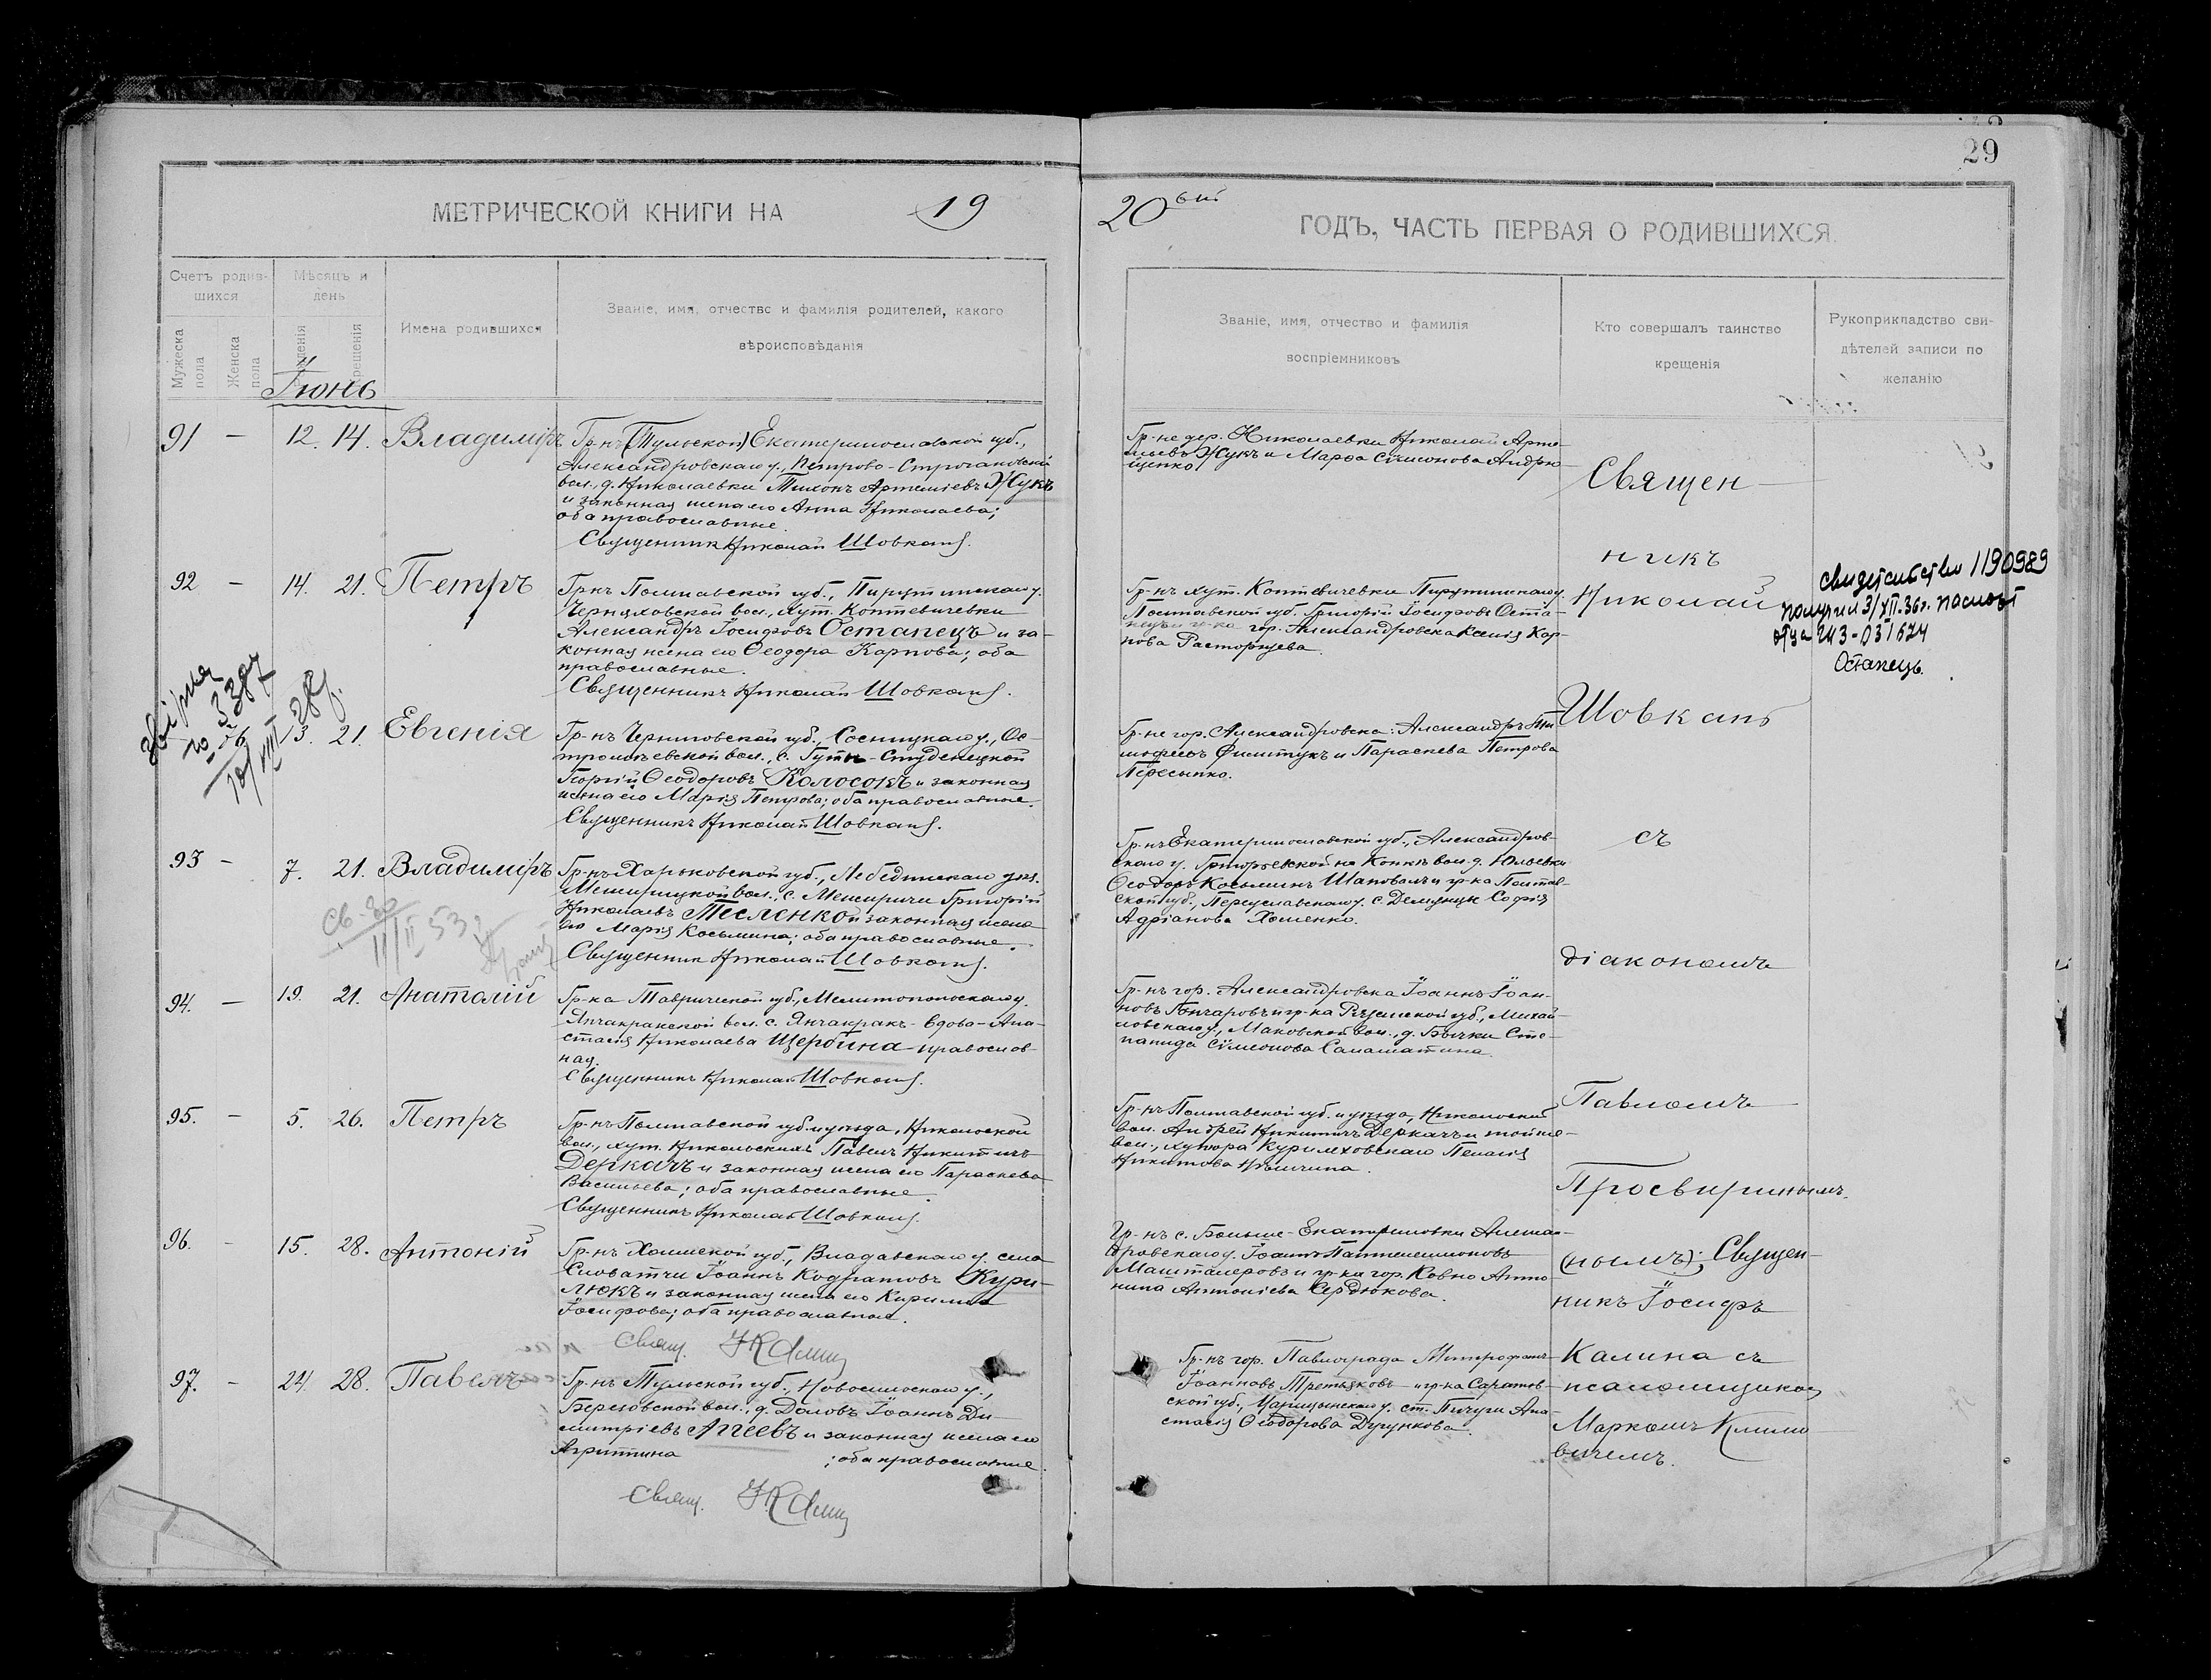 29
МЕТРИЧЕСКОЙ КНИГИ НА 19
20 ый ГОДЪ, ЧАСТЬ ПЕРВАЯ О РОДИВШИХСЯ.
Счетъ родив-
шихся
Мѣсяцъ и
день
Мужеска
пола
Женска
пола
Крещенія
Имена родившихся
Званіе, имя, отчество и фамилія родителей, какого
вѣроисповѣданія
Званіе, имя, отчество и фамилія
воспріемниковъ
Кто совершалъ таинство
крещенія
Рукоприкладство сви-
дѣтелей записи по
желанію
Іюнь
91 — 12. 14. Владиміръ
Гр-нъ (Тульской) Екатеринославской губ.,
Александровскаго у., Петрово-Строгановской
вол., д. Николаевки Тихонъ Артеміевъ Жукъ
и законная жена его Анна Николаева;
оба православные.
Священникъ Николай Шовкань.
Гр-не дер. Николаевки Николай Арте-
міевъ Жукъ и Марѳа Сѵмеонова Андрю-
щенко
92 — 14. 21. Петръ
Гр-нъ Полтавской губ., Пирятинскаго у.
Черняховской вол., хут. Коптевичевки
Александръ Іосифовъ Остапецъ и за-
конная жена его Ѳеодора Карпова; оба
православные.
Священникъ Николай Шовкань.
Гр-нъ хут. Коптевичевки Пирятинскаго у.
Полтавской губ. Григорій Іосифовъ Оста-
пецъ и гр-ка гор. Александровска Ксенія Кар-
пова Расторгуева.
свидетельство 1190989
получил 3/XII-36 г. паспорт
отца 243-031624
Остапець.
звірка
338
56
10/VIII
28 г.
13. 21. Евгенія
Гр-нъ Черниговской губ., Сосницкаго у., Ос-
вол., с. Гуты-Студенецкой
Георгій Ѳеодоровъ Колосокъ и законная
жена его Марія Петрова; оба православные.
Священникъ Николай Шовкань.
Гр-не гор. Александровска: Александръ Ти-
моѳеевъ Филипукъ и Параскева Петрова
Пересыпко.
93 — 7. 21. Владиміръ
Гр-нъ Харьковской губ., Лебединскаго уѣз.
Межирицкой вол., с. Межиричи Григорій
Николаевъ Тесленко и законная жена
его Марія Косьмина; оба православные.
Священникъ Николай Шовкань.
Гр-нъ Екатеринославской губ., Александров-
скаго у. Григорьевской на Конкѣ вол. д. Юльевки
Ѳеодоръ Косьминъ Шаповалъ и гр-ка Полтав-
ской губ., Переяславскаго у. с. Демянцы Софія
Адріанова Хоменко.
св-во
11/II 53 г.
94. — 19. 21. Анатолій
Гр-ка Таврической губ., Мелитопольскаго у.
Янчакракской вол. с. Янчакракъ - вдова - Ана-
стасія Николаева Щербина - православ-
ная.
Священникъ Николай Шовкань.
Гр-нъ гор. Александровска Іоаннъ Іоан-
новъ Гончаровъ и гр-ка Рязанской губ., Михай-
ловскаго у., Маковской вол., д. Бычки Сте-
панида Сѵмеонова Саламатина.
95. — 5. 26. Петръ
Гр-нъ Полтавской губ. и уѣзда, Никольской
вол., хут. Никольскихъ Павелъ Никитинъ
Деркачъ и законная жена его Параскева
Васильева; оба православные.
Священникъ Николай Шовкань.
Гр-нъ Полтавской губ. и уѣзда, Никольской
вол. Андрей Никитинъ Деркачъ и той же-
вол., хутора Куриленховскаго Пелагія
Никитова
96. - 15. 28. Антоній
Гр-нъ Холмской губ., Владавскаго у. села
Словатичи Іоаннъ Кодратовъ Кури-
люкъ и законная жена его Кирилла
Іосифова; оба православные.
Свящ. І Калина
Гр-нъ с. Больше-Екатериновки Алексан-
дровскаго у. Іоаннъ Пантелеимоновъ
Машталеровъ и гр-ка гор. Ковно Анто-
нина Антоніева Сердюкова.
97. - 24. 28. Павелъ
Гр-нъ Тульской губ., Новосильскаго у.,
Березовской вол., д. Доловъ Іоаннъ Ди-
митріевъ Агѣевъ и законная жена его
Агриппина ; оба православные.
Свящ. І Калина
Гр-нъ гор. Павлограда Митрофанъ
Іоанновъ Третьяковъ и гр-ка Саратов-
ской губ., Царицынскаго у. ст. Пичуги Ана-
стасія Ѳеодорова Дугункова.
Священ-
никъ
Николай
Шовкань
съ
діакономъ
Павломъ
Просвиринымъ
(нымъ); Священ-
никъ Іосифъ
Калина съ
псаломщикомъ
Маркомъ Климо-
вичемъ.